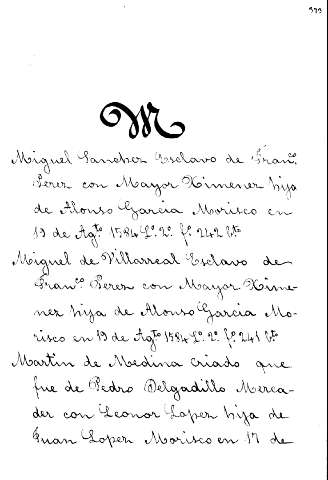 M
Miguel Sanchez Esclavo de Fran.co
Perez con Mayor Ximenez hija
de Alonso Garcia Morisco en
19 de Ag.to 1584 L.o 2.o f.o 242 b.to
Miguel de Villarreal Esclavo de
Fran.co Perez con Mayor Xime-
nez hija de Alonso Garcia Mo-
risco en 19 de Ag.to 1584 L.o 2.o f.o 241 b.to
Martin de Medina criado que
fue de Pedro Delgadillo Merca-
der con Leonor Lopez hija de
Juan Lopez Morisco en 17 de